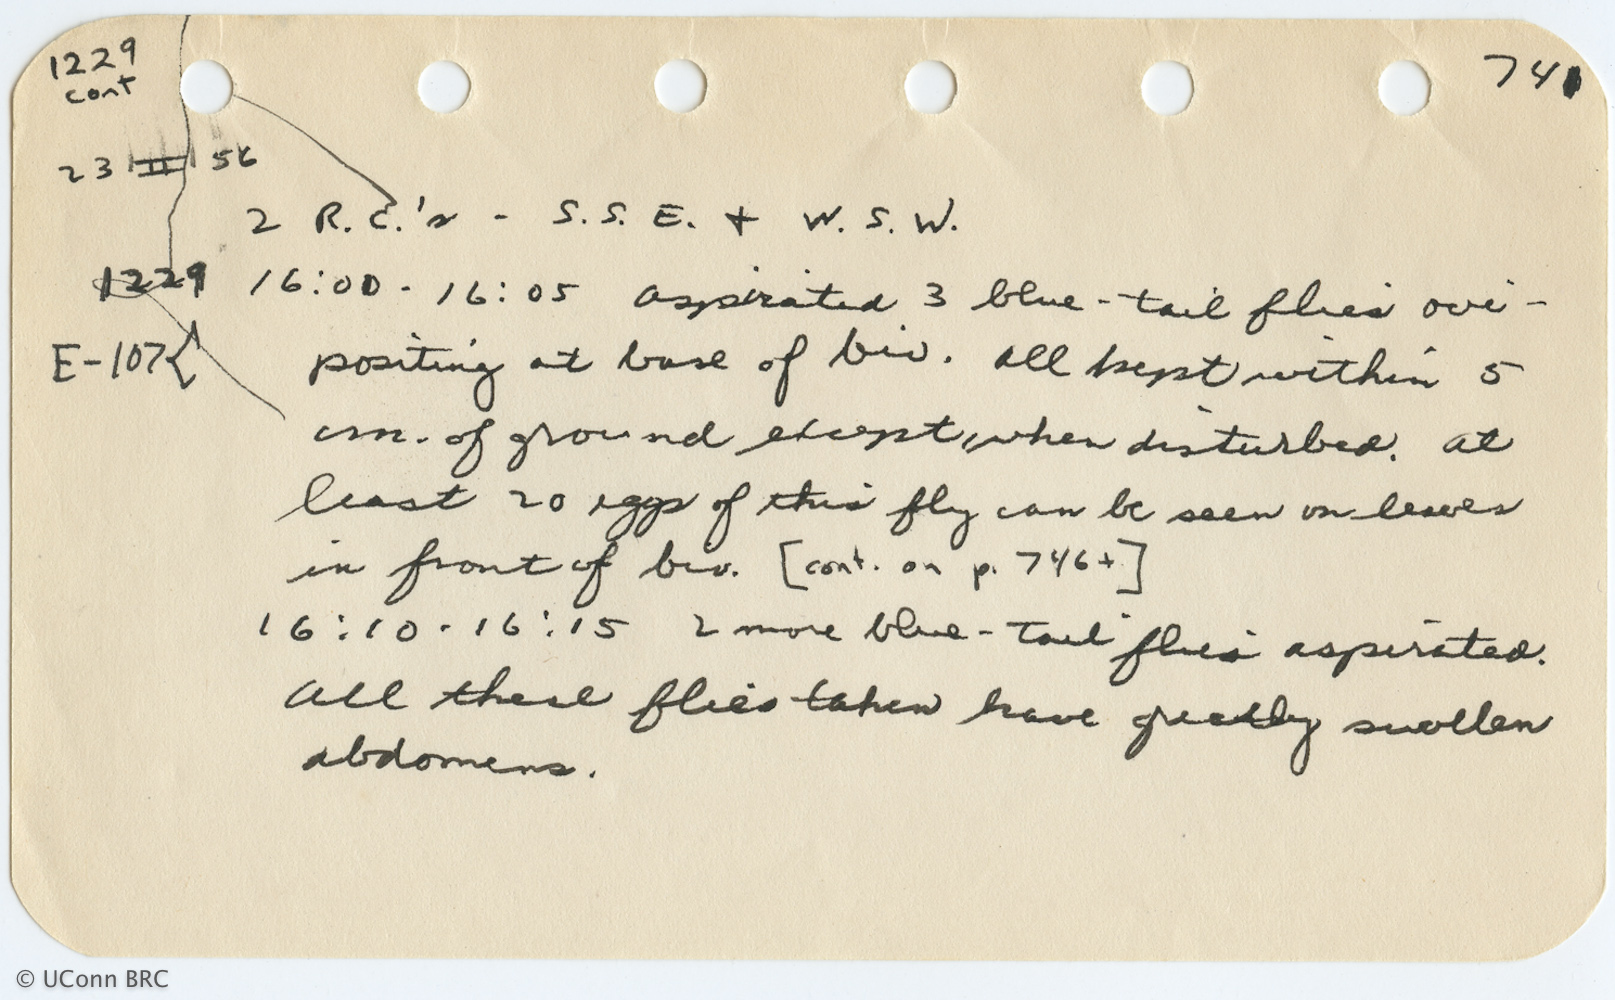 1229
cont
741
23 II 56
2 R.C.'s - S.S.E. + W.S.W.
1229 16:00 - 16:05 aspirated 3 blue-tail flies ovi-
E-107{ positing at base of biv. All kept within 5
cm. of ground except, when disturbed. At
least 20 eggs of this fly can be seen on leaves
in front of biv. [cont. on p. 746+]
16:10 - 16:15 2 more blue-tail flies aspirated.
All these flies taken have greatly swollen
abdomens.
© UConn BRC